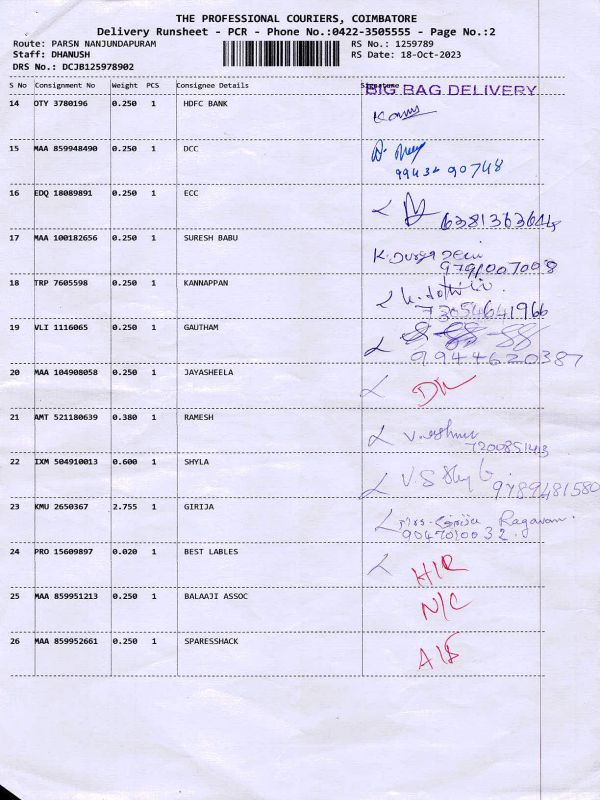 THE PROFESSIONAL COURIERS, COIMBATORE
Delivery Runsheet - PCR - Phone No.:0422-3505555 - Page No.:2
Route: PARSN NANJUNDAPURAM RS No.: 1259789
Staff: DHANUSH RS Date: 18-Oct-2023
DRS No.: DCJB125978902
S No Consignment No Weight PCS Consignee Details Signature
BIG BAG DELIVERY
14 OTY 3780196 0.250 1 HDFC BANK
15 MAA 859948490 0.250 1 DCC
99432 90748
16 EDQ 18089891 0.250 1 ECC
6381363644
17 MAA 100182656 0.250 1 SURESH BABU
K. Durga Devi
9791007008
18 TRP 7605598 0.250 1 KANNAPPAN
73054641966
19 VLI 1116065 0.250 1 GAUTHAM
9944620387
20 MAA 104908058 0.250 1 JAYASHEELA
DL
21 AMT 521180639 0.380 1 RAMESH
22 IXM 504910013 0.600 1 SHYLA
9789481580
23 KMU 2650367 2.755 1 GIRIJA
Mrs. Girija Ragavan.
9047010032.
24 PRO 15609897 0.020 1 BEST LABLES
H/R
25 MAA 859951213 0.250 1 BALAAJI ASSOC
N/C
26 MAA 859952661 0.250 1 SPARESSHACK
A/S